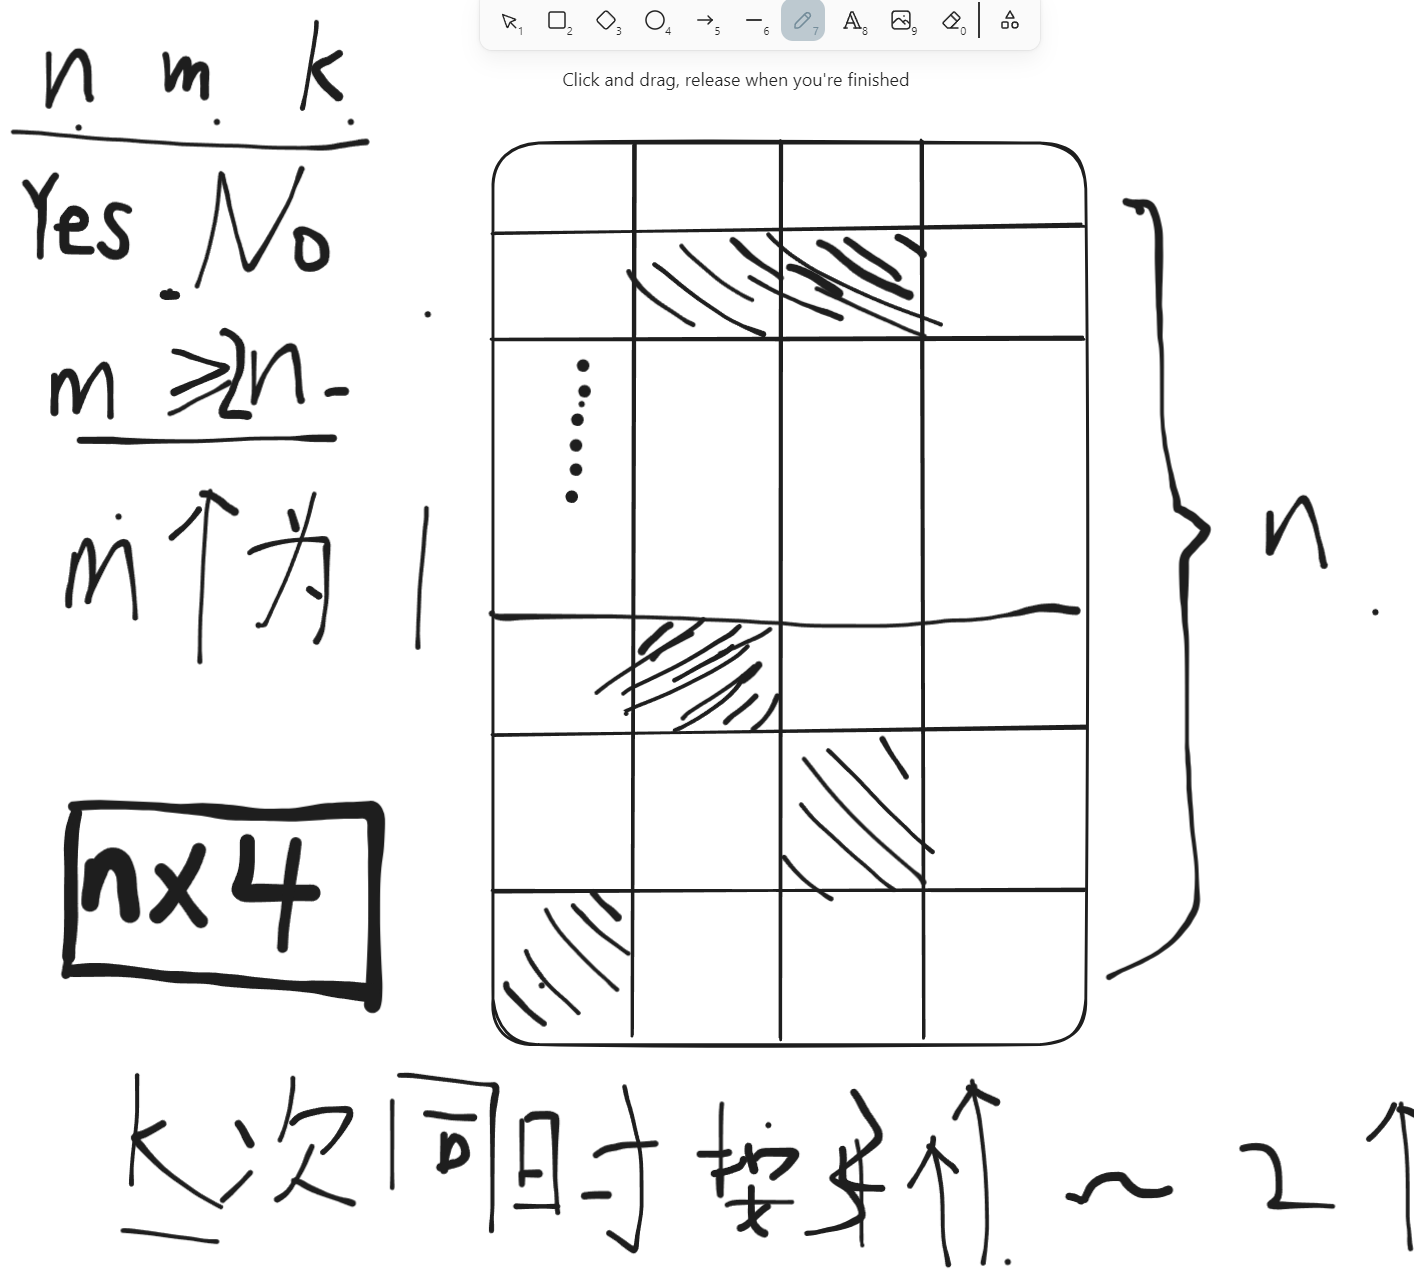 1 2 3 4 5 6 7 A 8 9 0
Click and drag, release when you're finished
n m k
Yes No
m ≥ 2n
m 个为 1
n
n×4
k次 同时 ~ 2个